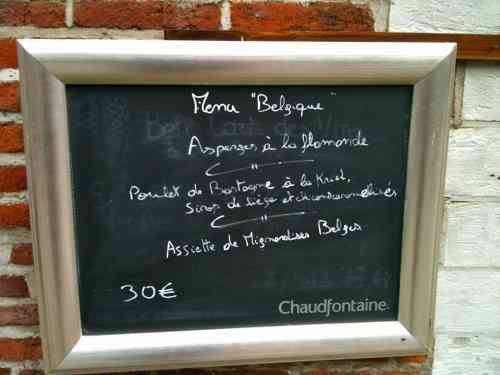 Menu "Belgique"
Asperges à la flamande
"
Poulet de Bastogne à la Kriek,
Sirop de Liège et chicons caramélisés
"
Assiette de Mignardises Belges
30€
Chaudfontaine